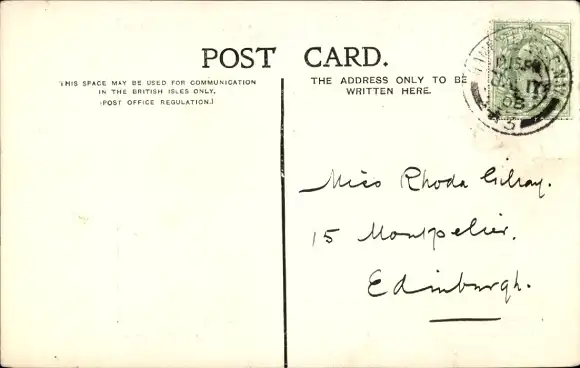 POST CARD.
THIS SPACE MAY BE USED FOR COMMUNICATION
IN THE BRITISH ISLES ONLY.
(POST OFFICE REGULATION.)
THE ADDRESS ONLY TO BE
WRITTEN HERE.
Miss Rhoda Gilray.
15 Montpelier.
Edinburgh.